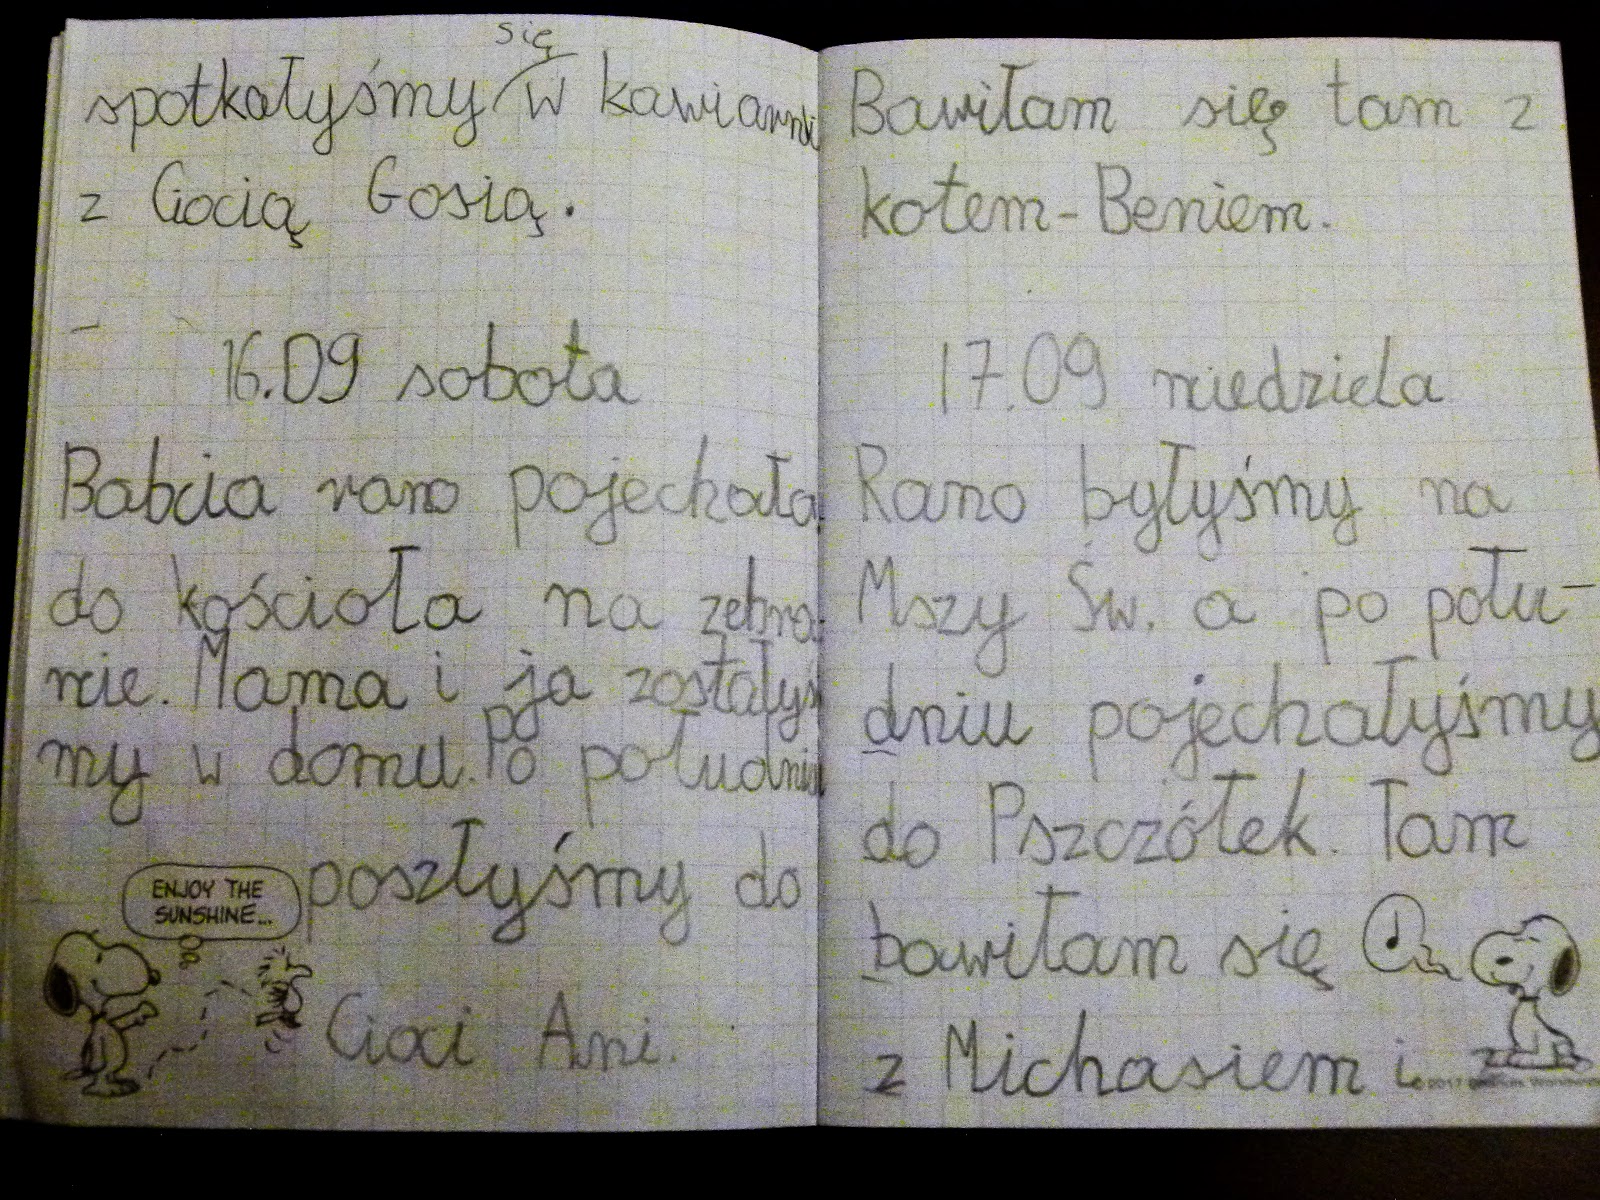 się
spotkałyśmy w kawiarni
z Ciocią Gosią.
16.09 sobota
Babcia rano pojechała
do kościoła na zebra-
nie. Mama i ja zostałyś
my w domu. Po
Po południu
poszłyśmy do
ENJOY THE
SUNSHINE...
Cioci Ani.
Bawiłam się tam z
kotem-Beniem.
17.09 niedziela
Rano byłyśmy na
Mszy Św. a po połu-
dniu pojechałyśmy
do Pszczółek. Tam
bawiłam się
z Michasiem i z
© 2017 Peanuts Worldwide